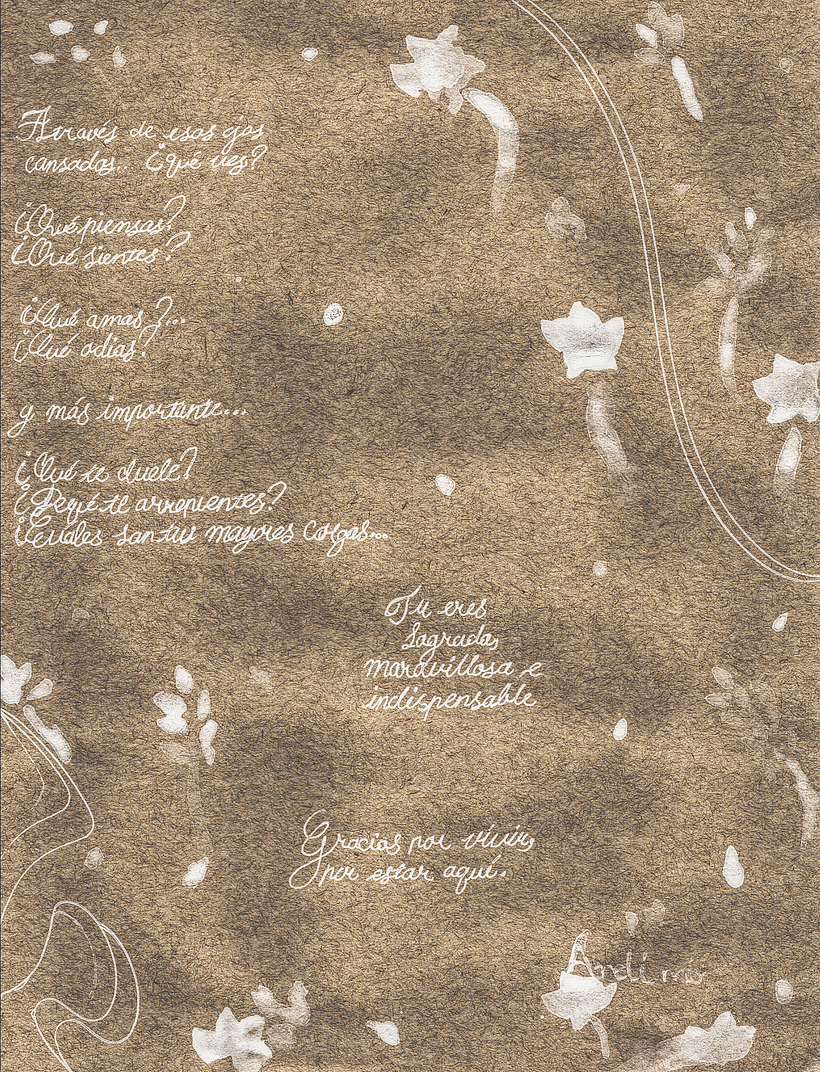 Através de esos ojos
cansados.. ¿qué ves?
¿Qué piensas?
¿Qué sientes?
¿Qué amas?...
¿Qué odias?
y más importante...
¿Qué te duele?
¿De qué te arrepientes?
¿Cuáles son tus mayores cargas...
Tu eres
Sagrada,
maravillosa e
indispensable
Gracias por vivir,
por estar aquí.